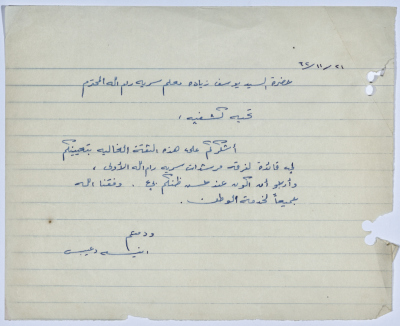 ٦٢/١١/٢١
حضرة السيد يوسف زياده معلم سرية رام الله المحترم
تحية كشفيه ،
اشكركم على هذه الثقة الغاليه بتعيينكم
لي قائدة لفرقة مرشدات سرية رام الله الأولى ،
وأرجو أن أكون عند حسن ظنكم بي . وفقنا الله
جميعاً لخدمة الوطن .
ودمتم